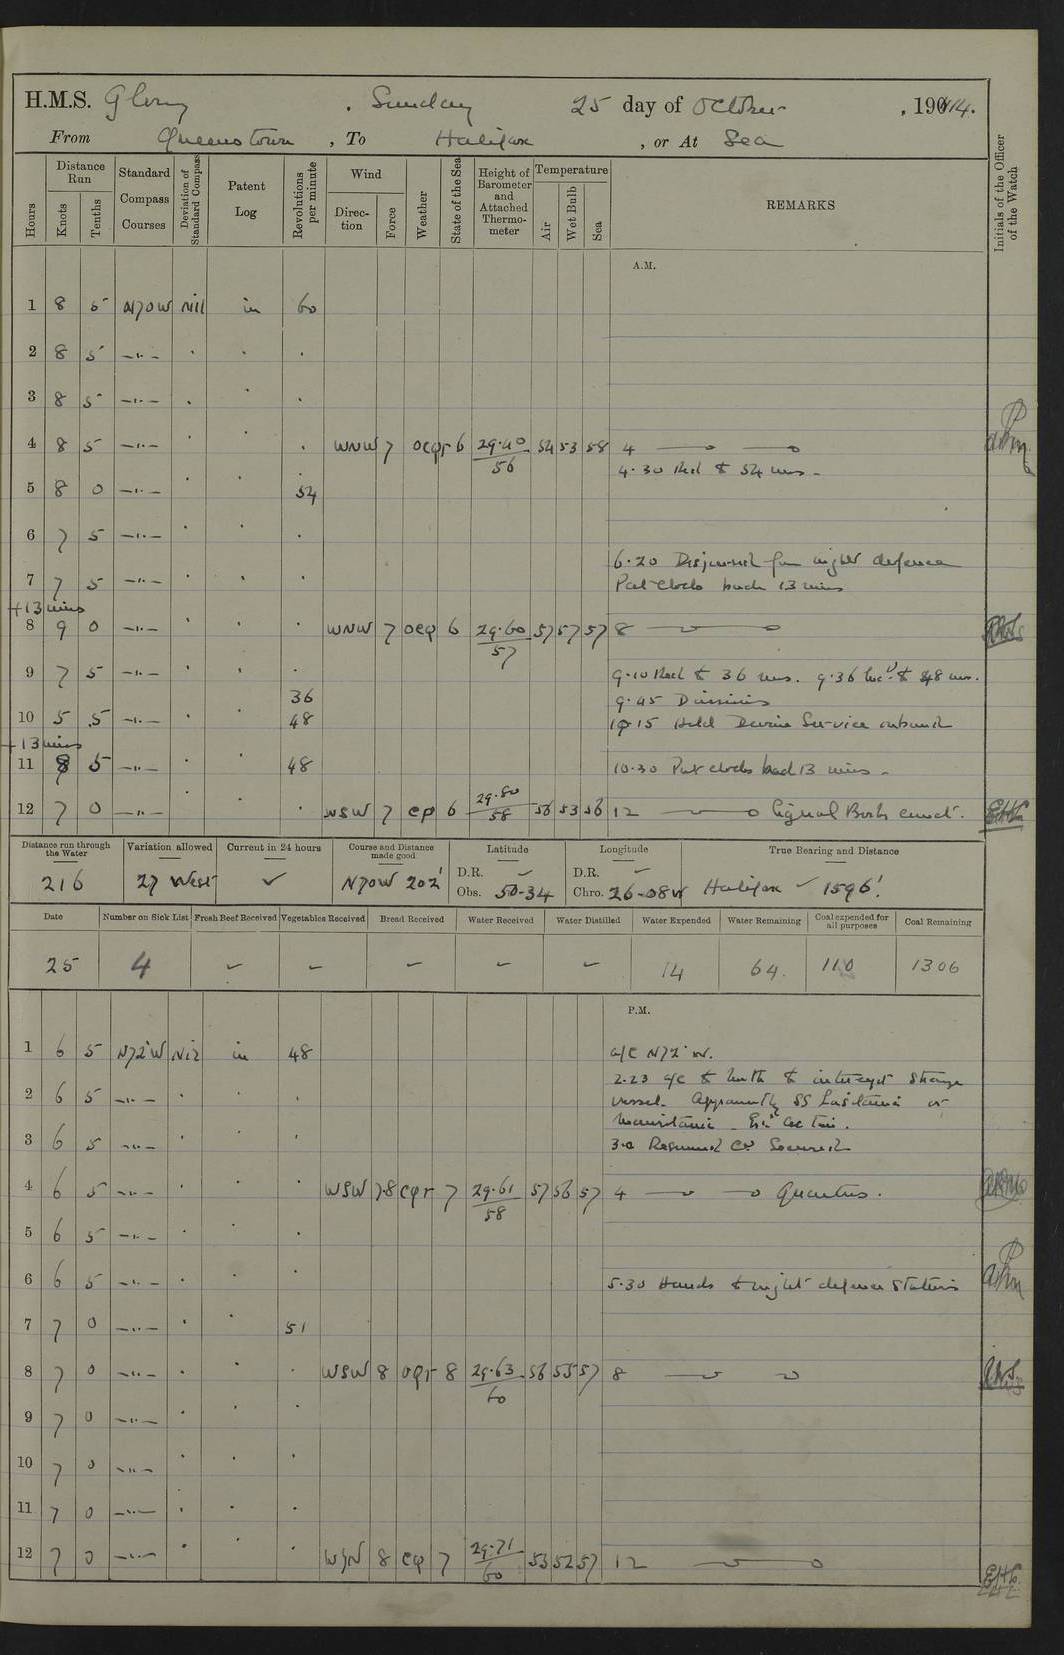 H.M.S. Glory, Sunday 25 day of October, 1914.
From Queenstown, To Halifax, or At Sea
Hours
Distance Run
Knots
Tenths
Standard Compass Courses
Deviation of Standard Compass
Patent Log
Revolutions per minute
Wind
Direction
Force
Weather
State of the Sea
Height of Barometer and Attached Thermometer
Temperature
Air
Wet Bulb
Sea
REMARKS
Initials of the Officer of the Watch
A.M.
1 8 5 N70W Nil in 60
2 8 5 —"— . . .
3 8 5 —"— . . .
4 8 5 —"— . . . WNW 7 ocqr 6 29.40/56 54 53 58 4
4.30 Red to 54 revs -
5 8 0 —"— . . 54
6 7 5 —"— . . .
6.20 Dispersed from night defence
7 7 5 —"— . . . Put clocks back 13 mins
+13 mins
8 9 0 —"— . . . WNW 7 ocq 6 29.60/57 57 57 57 8
9 7 5 —"— . . . 9.10 Red to 36 revs. 9.36 Inc'd to 48 revs.
36 9.45 Divisions
10 5 5 —"— . . 48 10.15 Held Devine Service onboard
+13 mins
11 8 5 —"— . . 48 10.30 Put clocks back 13 mins -
12 7 0 —"— . . . WSW 7 cp 6 29.80/58 56 53 56 12 Signal Books
Distance run through the Water 216
Variation allowed 27 West
Current in 24 hours ✓
Course and Distance made good N70W 202'
Latitude D.R. ✓ Obs. 50-34
Longitude D.R. ✓ Chro. 26-08W
True Bearing and Distance Halifax ✓ 1596'
Date Number on Sick List Fresh Beef Received Vegetables Received Bread Received Water Received Water Distilled Water Expended Water Remaining Coal expended for all purposes Coal Remaining
25 4 ✓ ✓ ✓ ✓ ✓ 14 64. 110 1306
P.M.
1 6 5 N72°W Nil in 48 a/c N72°W.
2.23 a/c to North to intercept Strange
2 6 5 —"— . . . vessel. Apparently SS Lusitania or
Mauritania.
3 6 5 —"— . . . 3.0 Resumed Co. Secured
4 6 5 —"— . . . WSW 7-8 cqr 7 29.61/58 57 56 57 4 Quarters.
5 6 5 —"— . . .
6 6 5 —"— . . . 5.30 Hands to night defence Stations
7 7 0 —"— . . 51
8 7 0 —"— . . . WSW 8 oqr 8 29.63/60 56 55 57 8
9 7 0 —"— . . .
10 7 0 —"— . . .
11 7 0 —"— . . .
12 7 0 —"— . . . WbyN 8 cq 7 29.71/60 53 52 57 12